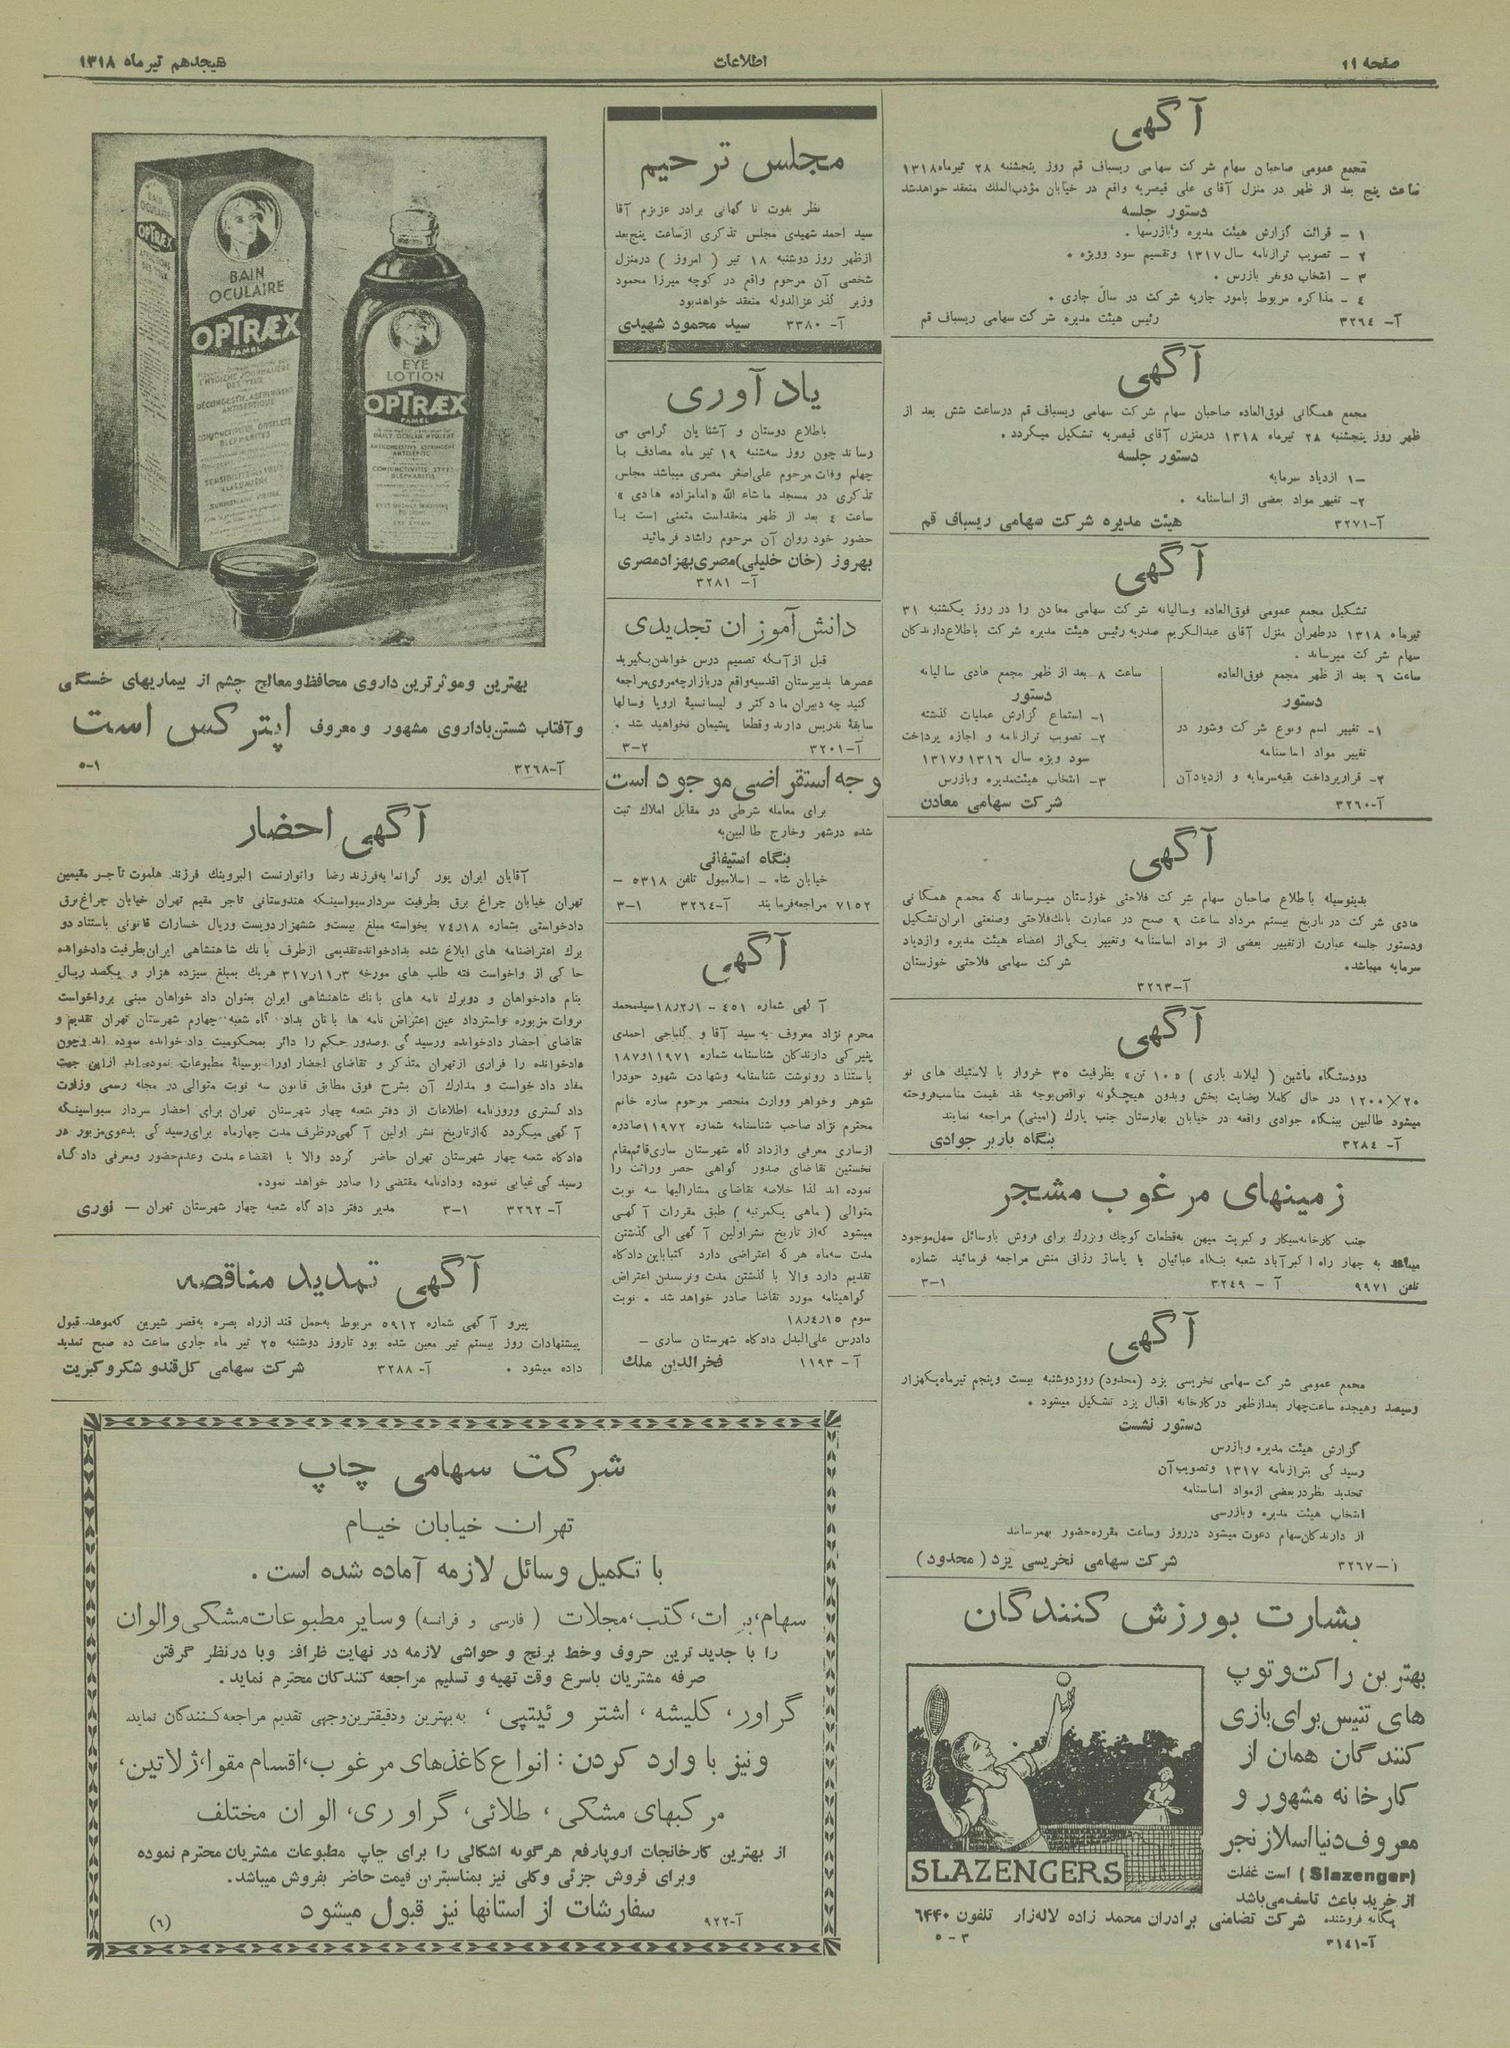 صفحه ۱۱
اطلاعات
هیجدهم تیرماه ۱۳۱۸
آگهی
مجمع عمومی صاحبان سهام شرکت سهامی ریسباف قم روز پنجشنبه ۲۸ تیرماه ۱۳۱۸
ساعت پنج بعد از ظهر در منزل آقای علی قیصریه واقع در خیابان مؤدب‌الملك منعقد خواهد شد
دستور جلسه
۱ - قرائت گزارش هیئت مدیره و بازرسها .
۲ - تصویب ترازنامه سال ۱۳۱۷ و تقسیم سود وویژه .
۳ - انتخاب دونفر بازرس .
٤ - مذاکره مربوط بامور جاریه شرکت در سال جاری .
آ- ۳۲٦٤ رئیس هیئت مدیره شرکت سهامی ریسباف قم
آگهی
مجمع همگانی فوق‌العاده صاحبان سهام شرکت سهامی ریسباف قم درساعت شش بعد از
ظهر روز پنجشنبه ۲۸ تیرماه ۱۳۱۸ درمنزل آقای قیصریه تشکیل میگردد .
دستور جلسه
۱- ازدیاد سرمایه
۲- تغییر مواد بعضی از اساسنامه .
آ-۳۲۷۱ هیئت مدیره شرکت سهامی ریسباف قم
آگهی
تشکیل مجمع عمومی فوق‌العاده وسالیانه شرکت سهامی معادن را در روز یکشنبه ۳۱
تیرماه ۱۳۱۸ درطهران منزل آقای عبدالکریم صدریه رئیس هیئت مدیره شرکت باطلاع‌دارندکان
سهام شرکت میرساند .
ساعت ٦ بعد از ظهر مجمع فوق‌العاده
دستور
۱- تغییر اسم ونوع شرکت وشور در
تغییر مواد اساسنامه
۲- قرارپرداخت بقیه‌سرمایه و ازدیادآن
ساعت ۸ بعد از ظهر مجمع عادی سالیانه
دستور
۱- استماع گزارش عملیات گذشته
۲- تصویب ترازنامه و اجازه پرداخت
سود ویژه سال ۱۳۱٦ و۱۳۱۷
۳- انتخاب هیئت‌مدیره وبازرس
آ-۳۲٦۰ شرکت سهامی معادن
آگهی
بدینوسیله باطلاع صاحبان سهام شرکت فلاحتی خوزستان میرساند که مجمع همگانی
عادی شرکت در تاریخ بیستم مرداد ساعت ۹ صبح در عمارت بانك‌فلاحتی وصنعتی ایران‌تشکیل
ودستور جلسه عبارت ازتغییر بعضی از مواد اساسنامه وتغییر یکی‌از اعضاء هیئت مدیره وازدیاد
سرمایه میباشد. شرکت سهامی فلاحتی خوزستان
آ-۳۲٦۳
آگهی
دودستگاه ماشین ( لیلاند باری ) «۱۰ تن» بظرفیت ۳۵ خروار با لاستیك های نو
۲۰×۱۲۰۰ در حال کاملا رضایت بخش وبدون هیچگونه نواقص‌بوجه نقد بقیمت مناسب‌فروخته
میشود طالبین ببنگاه جوادی واقعه در خیابان بهارستان جنب پارك (امینی) مراجعه نمایند
آ- ۳۲۸٤ بنگاه باربر جوادی
زمینهای مرغوب مشجر
جنب کارخانه‌سیکار و کبریت میهن به‌قطعات کوچك وبزرك برای فروش باوسائل سهل‌موجود
میباشد به چهار راه اکبرآباد شعبه بنگاه عبائیان یا پاساژ رزاق منش مراجعه فرمائید شماره
تلفن ۹۹۷۱ آ - ۳۲٤۹ ۱-۳
آگهی
مجمع عمومی شرکت سهامی نخریسی یزد (محدود) روزدوشنبه بیست وپنجم تیرماه‌یکهزار
وسیصد وهیجده ساعت‌چهار بعدازظهر درکارخانه اقبال یزد تشکیل میشود .
دستور نشست
گزارش هیئت مدیره وبازرس
رسیدگی بترازنامه ۱۳۱۷ وتصویب‌آن
تجدید نظردربعضی ازمواد اساسنامه
انتخاب هیئت مدیره وبازرسی
از دارندکان‌سهام دعوت میشود درروز وساعت مقرره‌حضور بهمرسانند
آ-۳۲٦۷ شرکت سهامی نخریسی یزد ( محدود )
بشارت بورزش کنندگان
بهترین راکت‌وتوپ
های تنیس‌برای‌بازی
کنندگان همان از
کارخانه مشهور و
معروف‌دنیااسلازنجر
(Slazenger) است غفلت
از خرید باعث تاسف‌می‌باشد
SLAZENGERS
یگانه فروشنده شرکت تضامنی برادران محمد زاده لاله‌زار تلفون ٦٤٤۰
آ-۳۱٤۱ ۳ - ۵
مجلس ترحیم
نظر بفوت ناگهانی برادر عزیزم آقا
سید احمد شهیدی مجلس تذکری ازساعت پنج‌بعد
ازظهر روز دوشنبه ۱۸ تیر ( امروز ) درمنزل
شخصی آن مرحوم واقع در کوچه میرزا محمود
وزیر گذر عزالدوله منعقد خواهدبود
آ- ۳۳۸۰ سید محمود شهیدی
یادآوری
باطلاع دوستان و آشنایان گرامی می
رساند چون روز سه‌شنبه ۱۹ تیر ماه مصادف با
چهلم وفات مرحوم علی‌اصغر مصری میباشد مجلس
تذکری در مسجد ماشاء الله «امامزاده هادی»
ساعت ٤ بعد از ظهر منعقداست متمنی است با
حضور خود روان آن مرحوم راشاد فرمائید
بهروز (خان خلیلی)مصری‌بهزادمصری
آ- ۳۲۸۱
دانش‌آموزان تجدیدی
قبل از آنکه تصمیم درس خواندن‌بگیرید
عصرها بدبیرستان اقدسیه‌واقع دربازارچه‌مروی‌مراجعه
کنید چه دبیران ما دکتر و لیسانسیۀ اروپا وسالها
سابقۀ تدریس دارند وقطعا پشیمان نخواهید شد .
آ-۳۲۰۱ ۲-۳
وجه استقراضی‌موجود است
برای معامله شرطی در مقابل املاك ثبت
شده درشهر وخارج طالبین‌به
بنگاه استیفانی
خیابان شاه - اسلامبول تلفن ۵۳۱۸ -
۷۱۵۲ مراجعه‌فرمایند آ-۳۲٦٤ ۱-۳
آگهی
آگهی شماره ٤۵۱ - ۱ر۲ر۱۸سیدمحمد
محرم نژاد معروف به سید آقا و گلباجی احمدی
پنیرکی دارندکان شناسنامه شماره ۱۱۹۷۱و۱۸۷
باستناد رونوشت شناسنامه وشهادت شهود خودرا
شوهر وخواهر ووارث منحصر مرحوم ساره خانم
محترم نژاد صاحب شناسنامه شماره ۱۱۹۷۲صادره
ازساری معرفی وازدادگاه شهرستان ساری‌قائم‌مقام
نخستین تقاضای صدور گواهی حصر وراثت را
نموده‌اند لذا خلاصه تقاضای مشارالیها سه نوبت
متوالی ( ماهی یکمرتبه ) طبق مقررات آگهی
میشود که‌از تاریخ نشراولین آگهی الی گذشتن
مدت سه‌ماه هر که اعتراضی دارد کتباباین دادگاه
تقدیم دارد والا با گذشتن مدت ونرسیدن اعتراض
گواهینامه مورد تقاضا صادر خواهد شد . نوبت
سوم ۱۵ر٤ر۱۸
دادرس علی‌البدل دادگاه شهرستان ساری -
آ - ۱۱۹۳ فخرالدین ملك
BAIN
OCULAIRE
OPTRÆX
FAMEL
EYE
LOTION
OPTRÆX
FAMEL
بهترین وموثرترین داروی محافظ‌ومعالج چشم از بیماریهای خستگی
وآفتاب شستن‌باداروی مشهور ومعروف اپترکس است
آ-۳۲٦۸ ۱-۵
آگهی احضار
آقایان ایران پور گرانمایه‌فرزند رضا وانوارنست البروینك فرزند هلموت تاجر مقیمین
تهران خیابان چراغ برق بطرفیت سردارسیواسینکه هندوستانی تاجر مقیم تهران خیابان چراغ‌برق
دادخواستی بشماره ۱۸ر۷٤ بخواسته مبلغ بیست‌و ششهزاردویست وریال خسارات قانونی باستناد دو
برك اعتراضنامه های ابلاغ شده بدادخوانده‌تقدیمی ازطرف بانك شاهنشاهی ایران‌بطرفیت دادخوانده
حاکی از واخواست فته طلب های مورخه ۳ر۱۱ر۳۱۷ هریك بمبلغ سیزده هزار و یکصد ریال
بنام دادخواهان و دوبرك نامه های بانك شاهنشاهی ایران بعنوان داد خواهان مبنی برواخواست
بروات مزبوره واسترداد عین اعتراض نامه ها بانان بداد گاه شعبه چهارم شهرستان تهران تقدیم و
تقاضای احضار دادخوانده ورسیدگی وصدور حکم را دائر بمحکومیت دادخوانده نموده اند وچون
دادخوانده را فراری ازتهران متذکر و تقاضای احضار اورا بوسیلۀ مطبوعات نموده‌اند ازاین جهت
مفاد دادخواست و مدارك آن بشرح فوق مطابق قانون سه نوبت متوالی در مجله رسمی وزارت
دادگستری وروزنامه اطلاعات از دفتر شعبه چهار شهرستان تهران برای احضار سردار سیواسینگه
آگهی میگردد که‌ازتاریخ نشر اولین آگهی‌درظرف مدت چهارماه برای‌رسیدگی بدعوی‌مزبور در
دادگاه شعبه چهار شهرستان تهران حاضر گردد والا با انقضاء مدت وعدم‌حضور ومعرفی دادگاه
رسیدگی غیابی نموده ودادنامه مقتضی را صادر خواهد نمود.
آ- ۳۲٦۲ ۱-۳ مدیر دفتر دادگاه شعبه چهار شهرستان تهران - نوری
آگهی تمدید مناقصه
پیرو آگهی شماره ۵۹۱۲ مربوط به‌حمل قند ازراه بصره به‌قصر شیرین که‌موعد قبول
پیشنهادات روز بیستم تیر معین شده بود تاروز دوشنبه ۲۵ تیر ماه جاری ساعت ده صبح تمدید
داده میشود . آ- ۳۲۸۸ شرکت سهامی کل‌قندو شکروکبریت
شرکت سهامی چاپ
تهران خیابان خیام
با تکمیل وسائل لازمه آماده شده است .
سهام، بروات، کتب، مجلات ( فارسی و فرانسه) وسایر مطبوعات‌مشکی‌والوان
را با جدیدترین حروف وخط برنج و حواشی لازمه در نهایت ظرافت وبا درنظر گرفتن
صرفه مشتریان باسرع وقت تهیه و تسلیم مراجعه کنندکان محترم نماید .
گراور، کلیشه ، اشترئوتیپی ، به‌بهترین ودقیقترین‌وجهی تقدیم مراجعه‌کنندگان نماید
ونیز با وارد کردن : انواع‌کاغذهای مرغوب، اقسام مقوا، ژلاتین،
مرکبهای مشکی ، طلائی، گراوری، الوان مختلف
از بهترین کارخانجات اروپارفع هرگونه اشکالی را برای چاپ مطبوعات مشتریان محترم نموده
وبرای فروش جزئی وکلی نیز بمناسبترین قیمت حاضر بفروش میباشد.
سفارشات از استانها نیز قبول میشود
آ-۹۲۲ (٦)